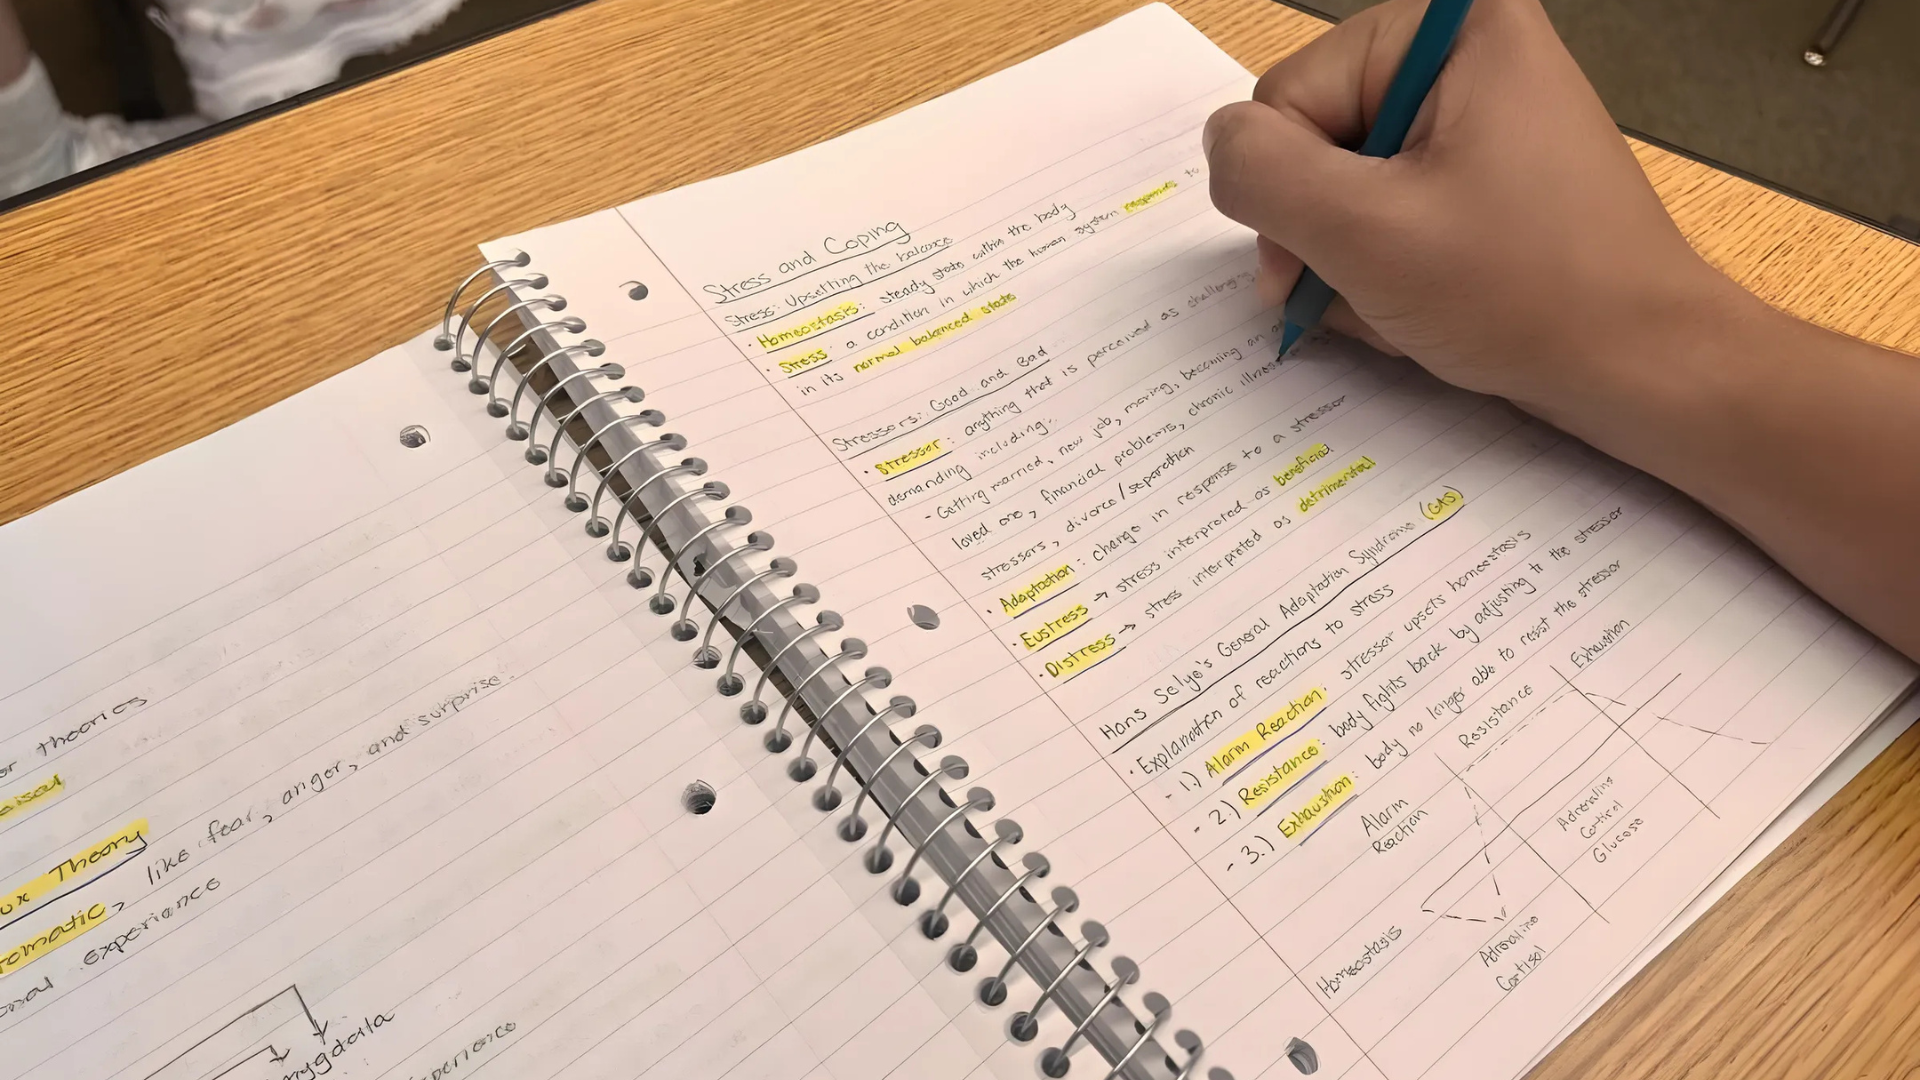 or theories
Theory
omatic, like fear, anger, and surprise.
experience
mygdala
perience
Stress and Coping
Stress: Upsetting the balance
· Homeostasis: steady state within the body
· Stress: a condition in which the human system responds to
in its normal balanced state
Stressors: Good and Bad
· Stressor: anything that is perceived as challenging
demanding including:
- Getting married, new job, moving, becoming an
loved one, financial problems, chronic illness
stressors, divorce/separation
· Adaptation: change in response to a stressor
· Eustress → stress interpreted as beneficial
· Distress → stress interpreted as detrimental
Hans Selye's General Adaptation Syndrome (GAS)
· Explanation of reactions to stress
- 1.) Alarm Reaction: stressor upsets homeostasis
- 2.) Resistance: body fights back by adjusting to the stressor
- 3.) Exhaustion: body no longer able to resist the stressor
Alarm
Reaction
Resistance
Exhaustion
Homeostasis
Adrenaline
Cortisol
Adrenaline
Cortisol
Glucose